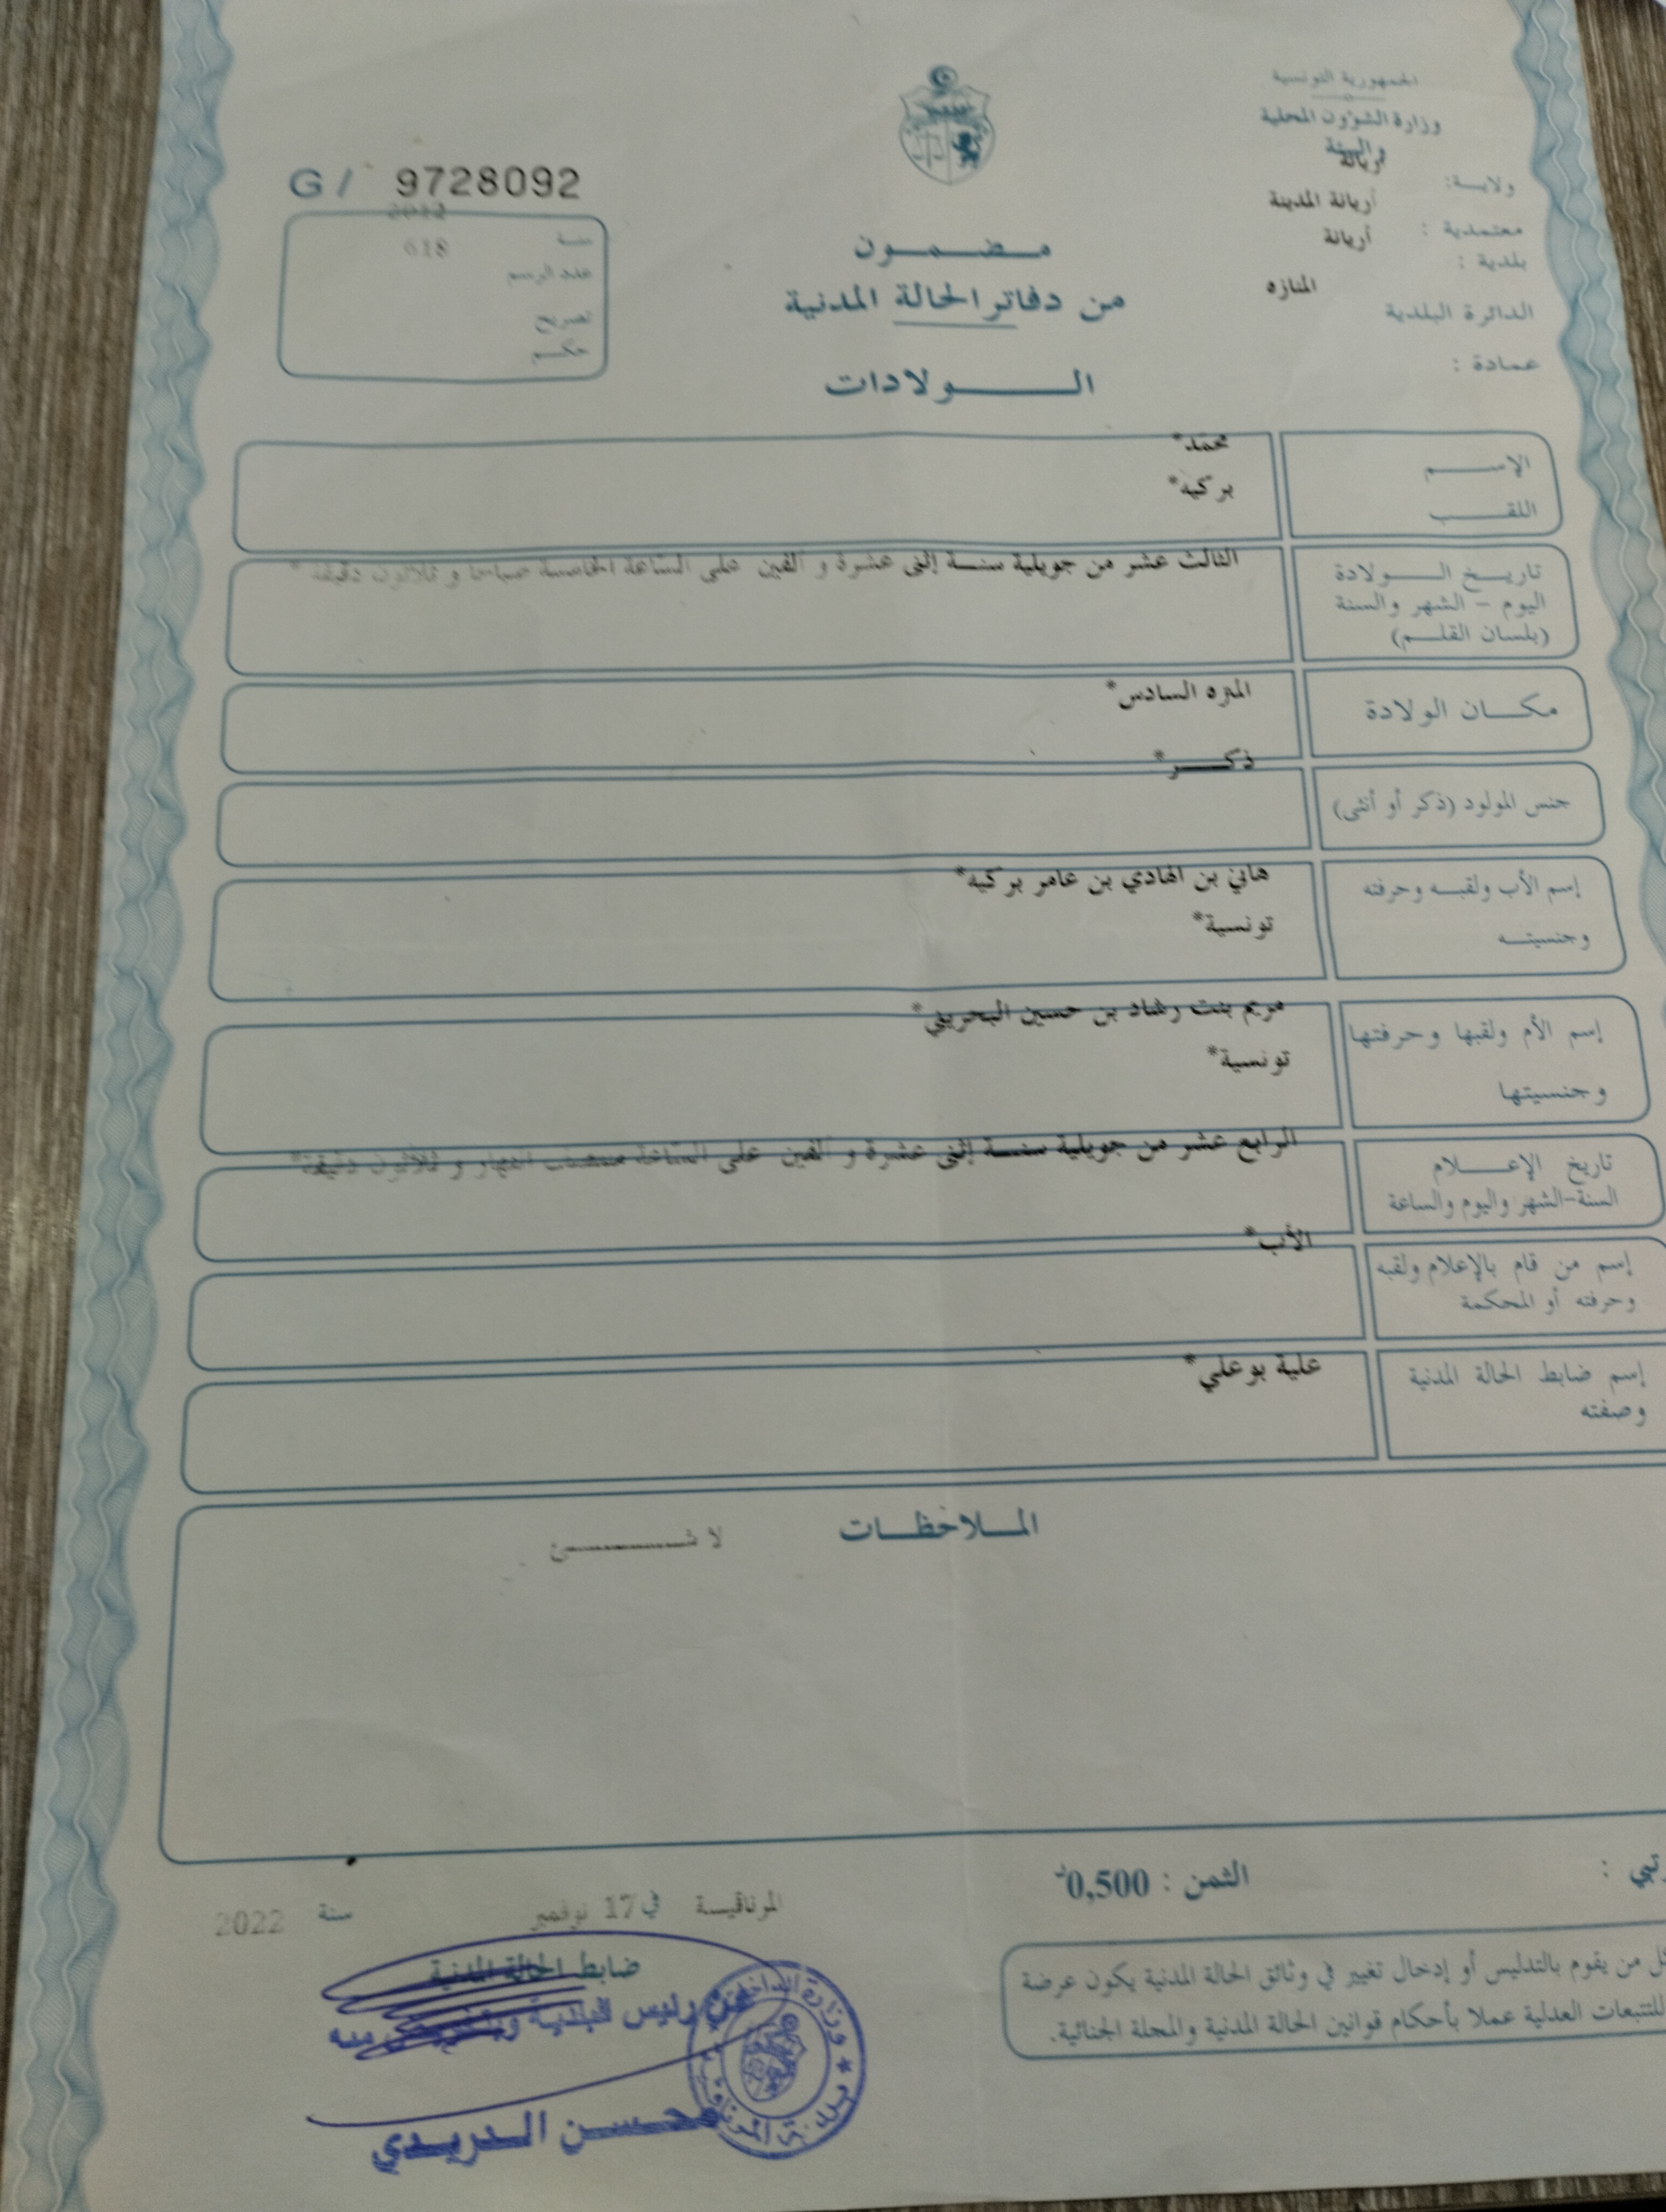 الجمهورية التونسية
وزارة الشؤون المحلية
والبيئة
ولاية: أريانة
معتمدية : أريانة المدينة
بلدية : أريانة
الدائرة البلدية المنازه
عمادة :
مضمون
من دفاتر الحالة المدنية
الولادات
G / 9728092
سنة 2012
عدد الرسم 618
تصريح
حكم
الإسم محمد*
اللقب بركيه*
تاريخ الولادة
اليوم - الشهر والسنة
(بلسان القلم)
الثالث عشر من جويلية سنة إثنى عشرة و ألفين على الساعة الخامسة صباحا و ثلاثون دقيقة *
مكان الولادة
المنزه السادس*
جنس المولود (ذكر أو أنثى)
ذكر*
إسم الأب ولقبه وحرفته
وجنسيته
هاني بن الهادي بن عامر بركيه*
تونسية*
إسم الأم ولقبها وحرفتها
وجنسيتها
مريم بنت رشاد بن حسين البحريني*
تونسية*
تاريخ الإعلام
السنة-الشهر واليوم والساعة
الرابع عشر من جويلية سنة إثنى عشرة و ألفين على الساعة منتصف النهار و ثلاثون دقيقة*
إسم من قام بالإعلام ولقبه
وحرفته أو المحكمة
الأب*
إسم ضابط الحالة المدنية
وصفته
علية بوعلي*
الملاحظات
لا شئ
الثمن : 0,500د
المرناقية في 17 نوفمبر سنة 2022
ضابط الحالة المدنية
عن رئيس البلدية وبتفويض منه
محسن الدريدي
كل من يقوم بالتدليس أو إدخال تغيير في وثائق الحالة المدنية يكون عرضة
للتتبعات العدلية عملا بأحكام قوانين الحالة المدنية والمجلة الجنائية.
وزارة الداخلية
بلدية المرناقية